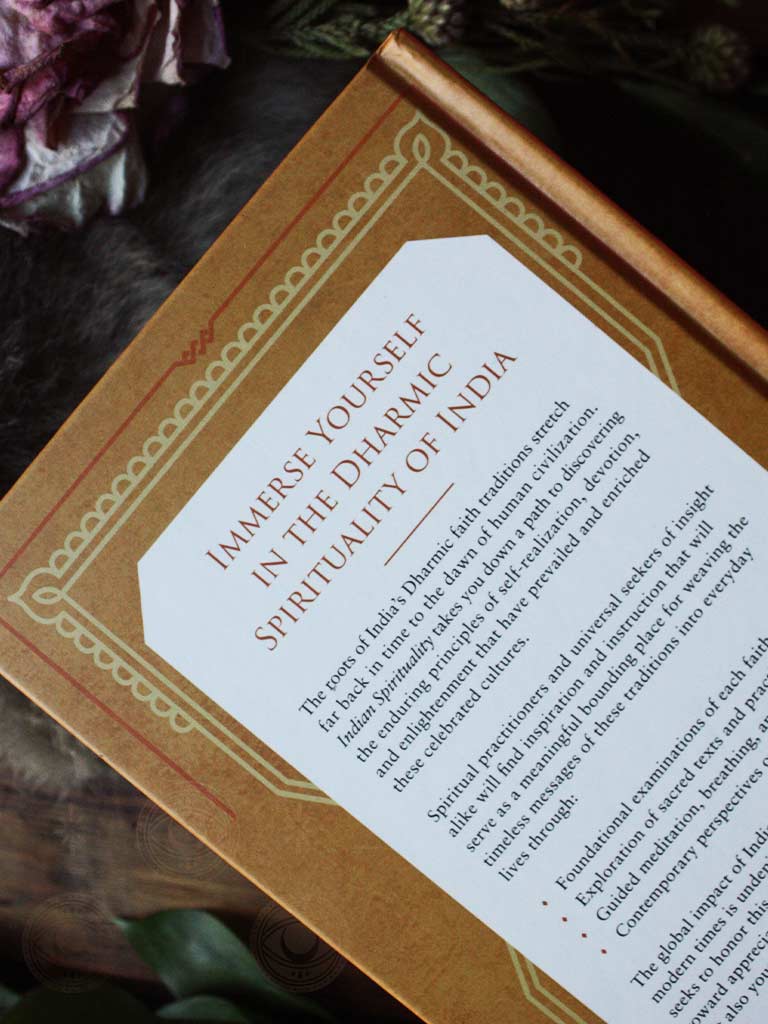 Immerse Yourself
in the Dharmic
Spirituality of India
The roots of India's Dharmic faith traditions stretch
far back in time to the dawn of human civilization.
Indian Spirituality takes you down a path to discovering
the enduring principles of self-realization, devotion,
and enlightenment that have prevailed and enriched
these celebrated cultures.
Spiritual practitioners and universal seekers of insight
alike will find inspiration and instruction that will
serve as a meaningful bounding place for weaving the
timeless messages of these traditions into everyday
lives through:
• Foundational examinations of each faith
• Exploration of sacred texts and
• Guided meditation, breathing,
• Contemporary perspectives
The global impact of
modern times is
seeks to honor this
also